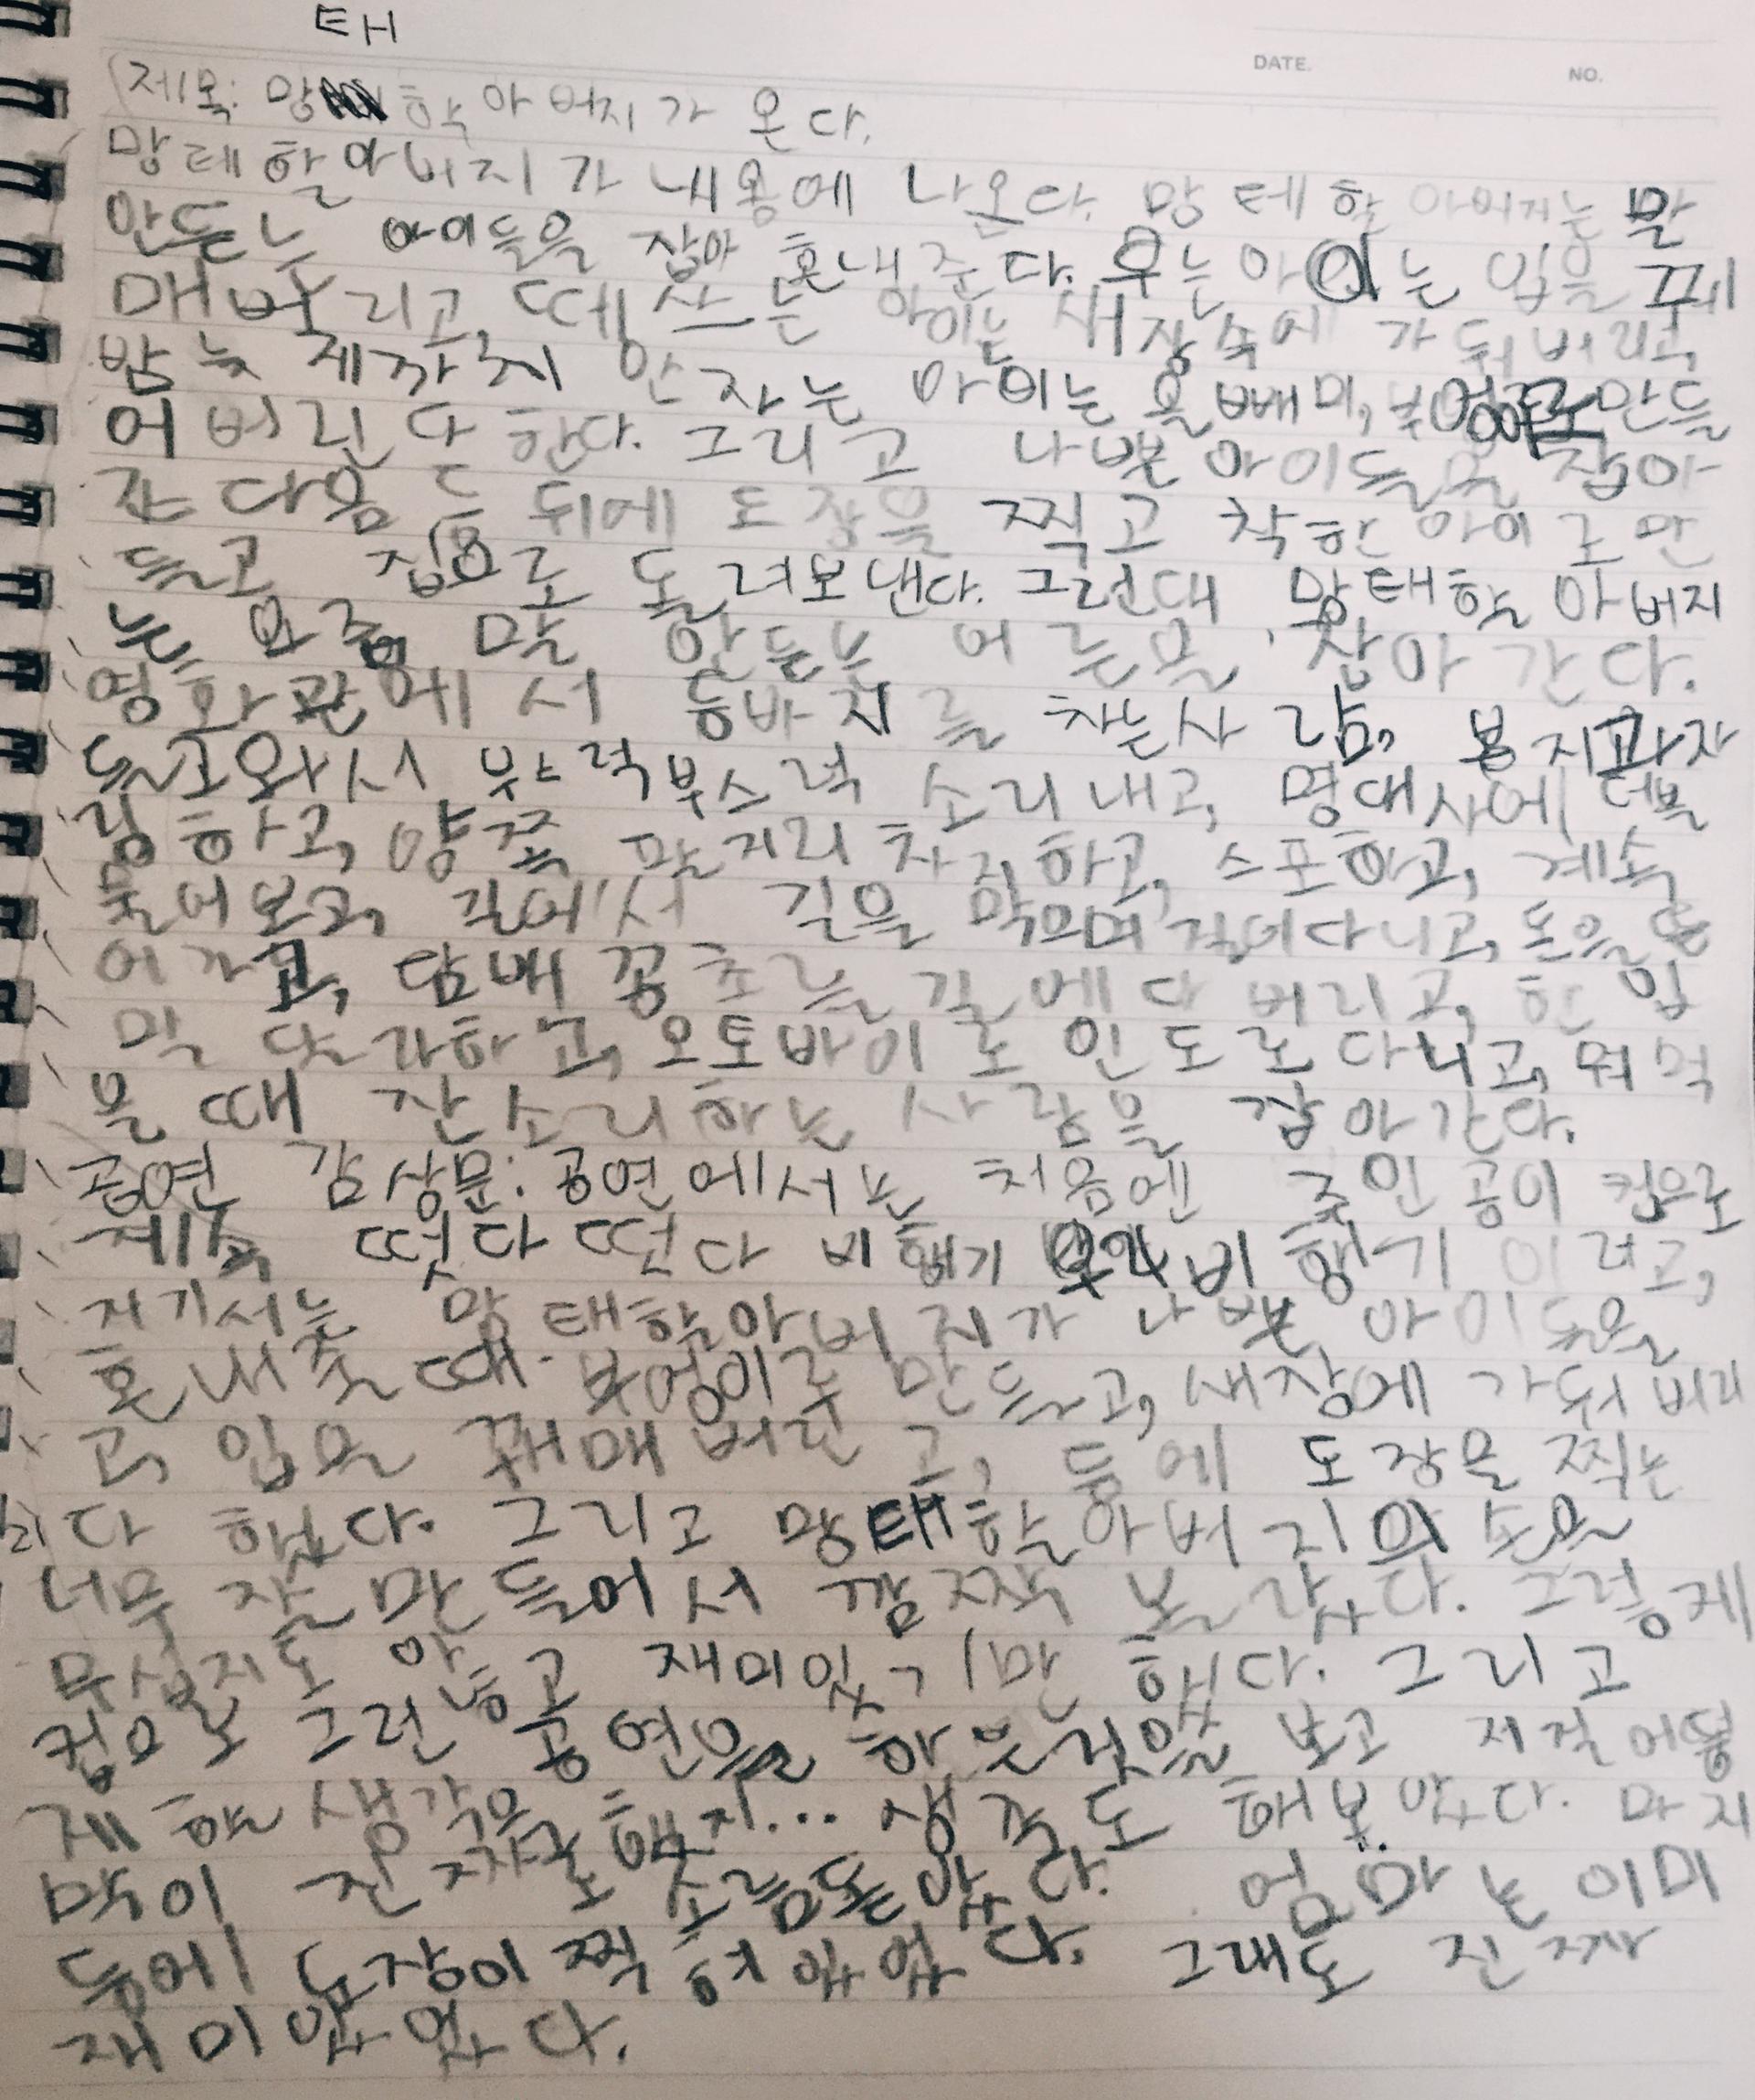 태
DATE.
NO.
제목: 망 할아버지가 온다.
망테할아버지가 내용에 나온다. 망테할아버지는 말
안듣는 아이들을 잡아 혼내준다. 우는 아이는 입을 꿰
매버리고, 떼쓰는 아이는 새장속에 가둬버리고,
밤늦게까지 안자는 아이는 올빼미, 만들
어버린다 한다. 그리고 나쁜아이들을 잡아
간다음 등 뒤에 도장을 찍고 착한 아이로 만
들고 집으로 돌려보낸다. 그런대 망태할아버지
는 요즘 말 안듣는 어른을 잡아간다.
영화관에서 등바지를 차는사람, 봉지과자
들고와서 부스럭부스럭 소리내고, 명대사에 더블
링하고, 양쪽 팔지리 차지하고, 스포하고, 계속
물어보고, 길에서 길을 막으며 걸어다니고, 돈을 뜯
어가고, 담배 꽁초를 길에다 버리고, 한입
만 달라하고, 오토바이로 인도로 다니고, 뭐먹
을 때 잔소리하는 사람을 잡아간다.
공연 감상문: 공연에서는 처음엔 주인공이 컵으로
계속 떳다떳다 비행기 우리비행기 이러고,
저기서는 망태할아버지가 나쁜 아이들을
혼내줄 때 부엉이로 만들고, 새장에 가둬버리
고, 입을 꿰매버린고, 등에 도장을 찍는
다 했다. 그리고 망태할아버지의 손을
너무 잘만들어서 깜짝 놀랐다. 그렇게
무섭지도 않고 재미있기만 했다. 그리고
컵으로 그런 공연을 하는것을 보고 저걸 어떻
게 할 생각을 했지... 생각도 해보았다. 마지
막이 진짜로 소름돋았다. 엄마는 이미
등에 도장이 찍혀있었다. 그래도 진짜
재미있었다.